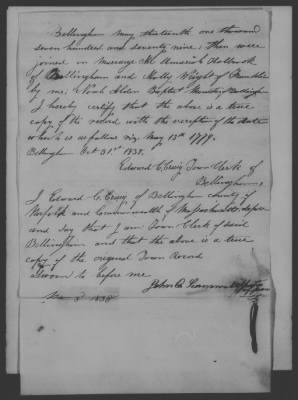 Bellingham may thirteenth one thousand
seven hundred and seventy nine; then were
joined in marriage Mr Amariah Holbrook
of Bellingham and Molly Wright of Franklin
by me; Noah Alden Baptist Minister
I hereby certify that the above is a true
copy of the record with the exception of the date
which is as follows viz. May 13th 1779.
Bellingham Oct 31st 1838.
Edward C. Craig Town Clerk of
Bellingham,
I Edward C. Craig of Bellingham county of
Norfolk and Commonwealth of Massachusetts depose
and say that I am Town Clerk of said
Bellingham and that the above is a true
copy of the original Town Record
Sworn to before me
1838
John C.